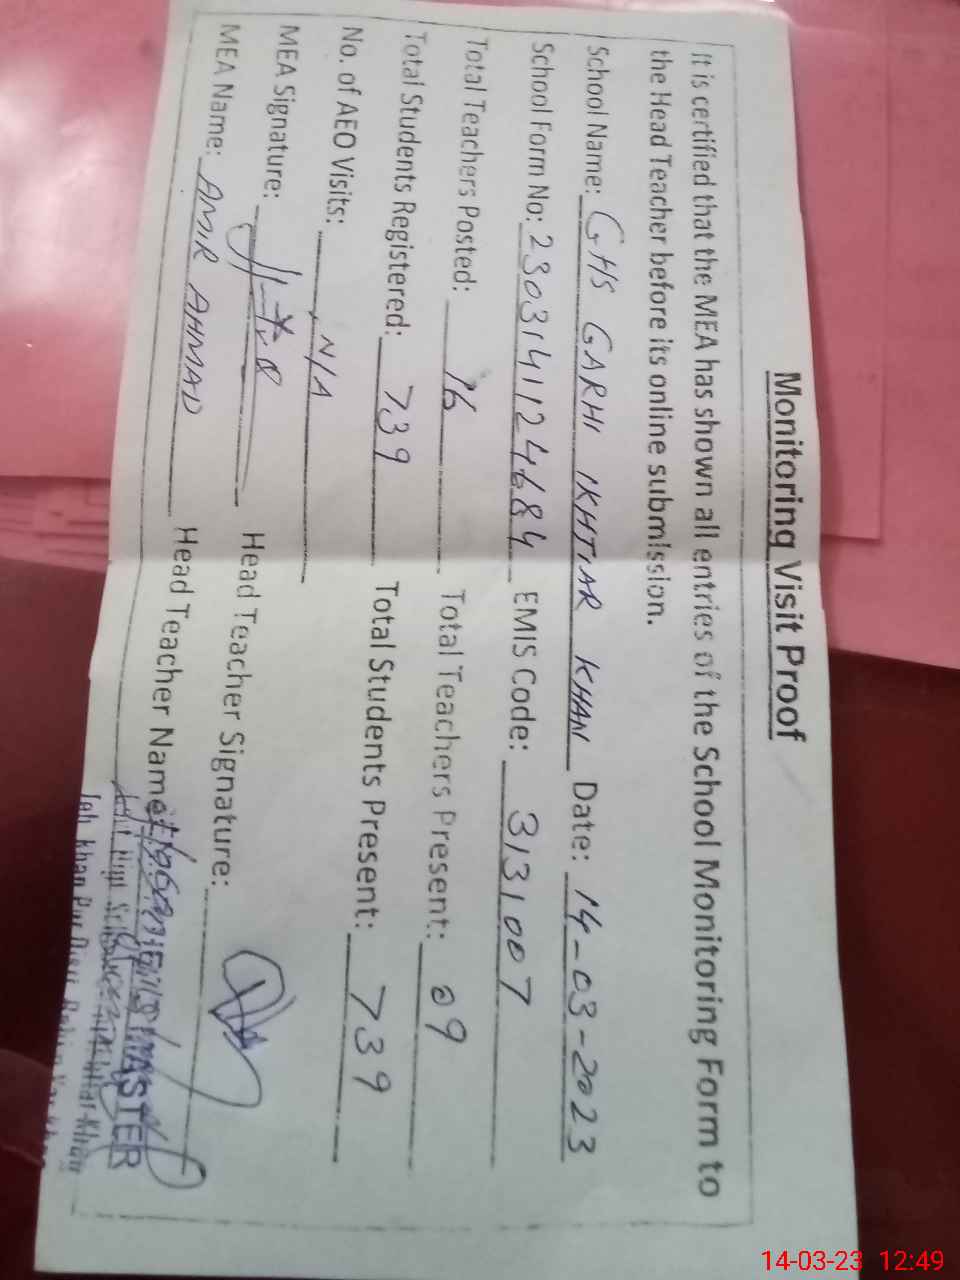 Monitoring Visit Proof
It is certified that the MEA has shown all entries of the School Monitoring Form to
the Head Teacher before its online submission.
School Name: GHS GARHI IKHTIAR KHAN Date: 14-03-2023
School Form No: 2303141124684 EMIS Code: 3131007
Total Teachers Posted: 16 Total Teachers Present: 09
Total Students Registered: 739 Total Students Present: 739
No. of AEO Visits: N/A
MEA Signature: Head Teacher Signature:
MEA Name: AMIR AHMAD Head Teacher Name:
MASTER
Khan Pur
14-03-23 12:49